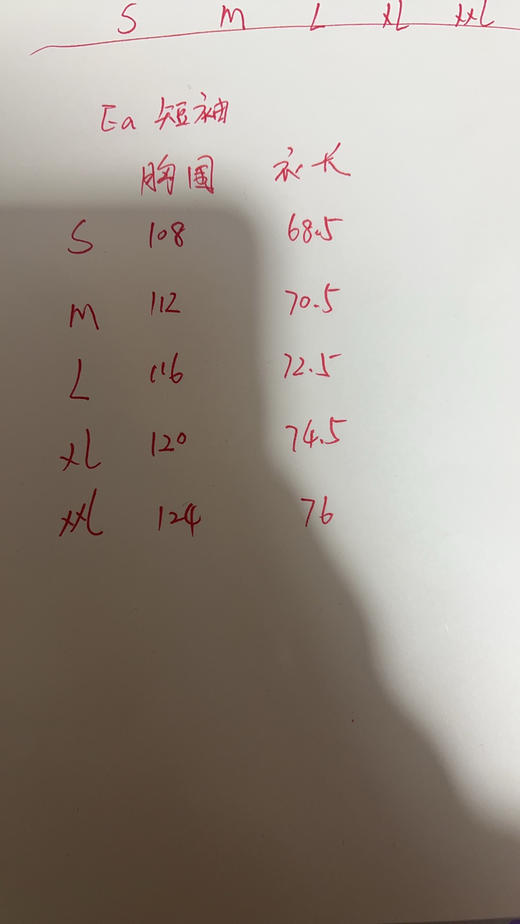 S M L XL XXL
Ea 短袖
胸围 衣长
S 108 68.5
M 112 70.5
L 116 72.5
XL 120 74.5
XXL 124 76